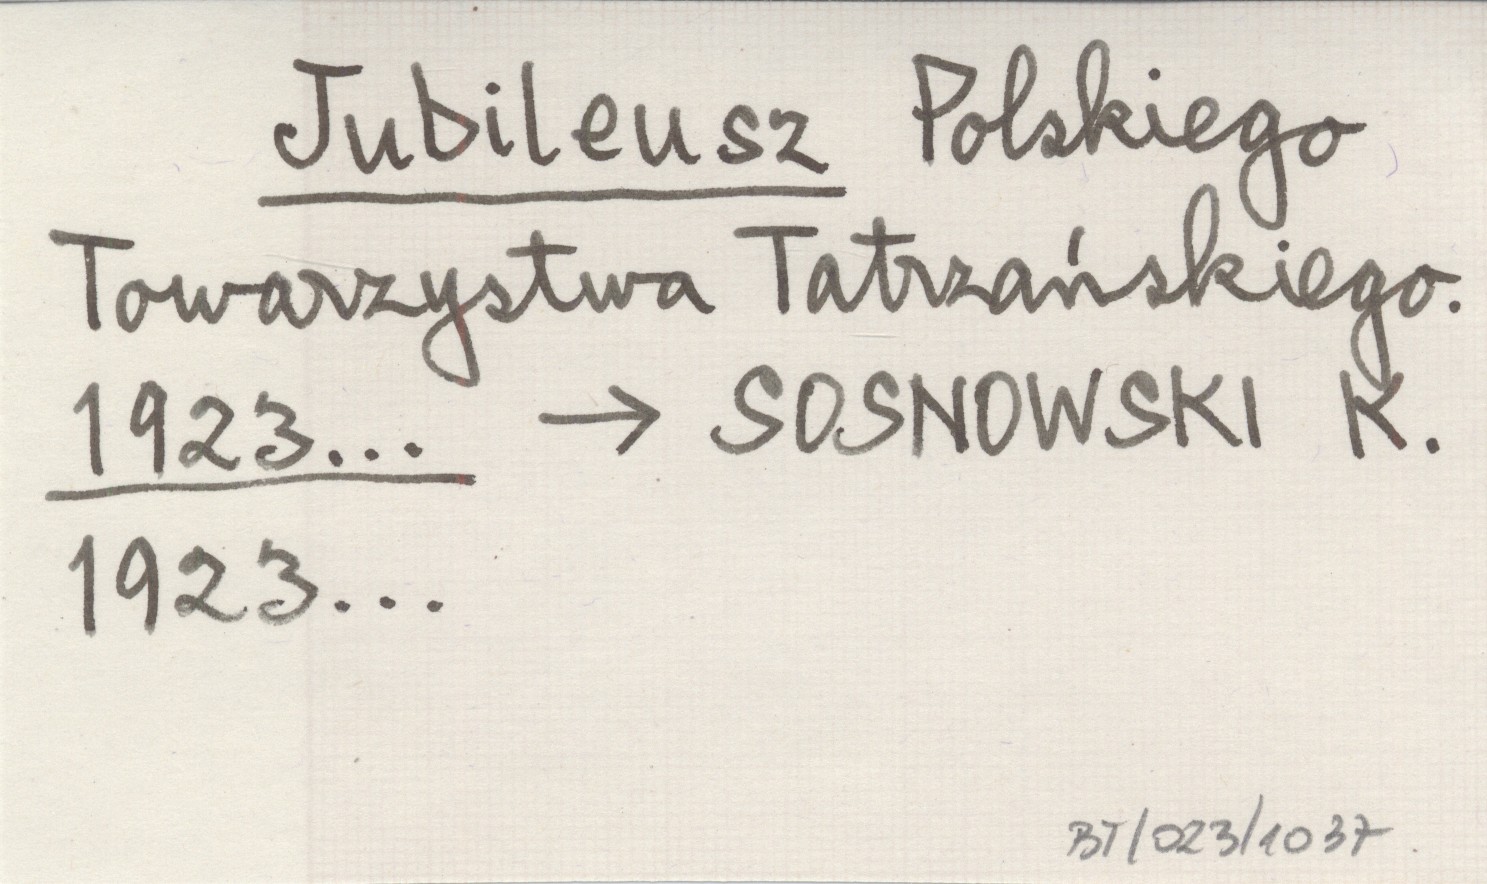 Jubileusz Polskiego
Towarzystwa Tatrzańskiego.
1923... → SOSNOWSKI K.
1923...
BT/023/1037